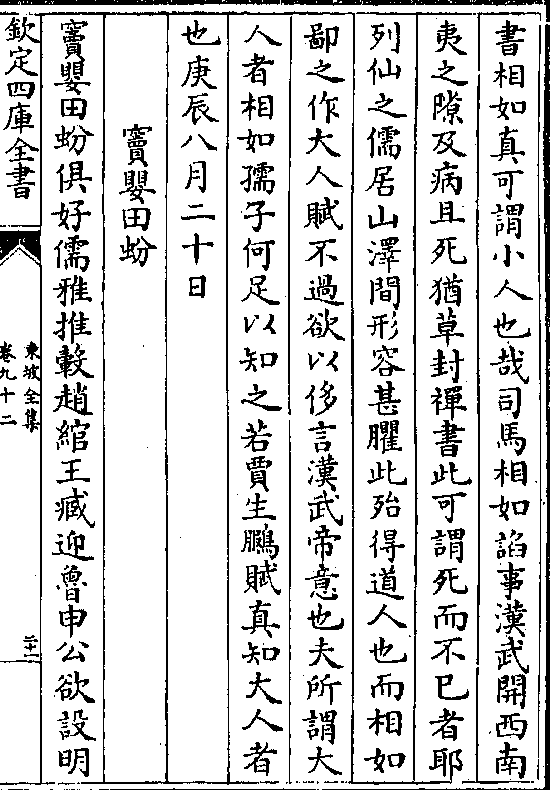 書相如真可謂小人也哉司馬相如諂事漢武開西南
夷之隙及病且死猶草封禪書此可謂死而不已者耶
列仙之儒居山澤間形容甚臞此殆得道人也而相如
鄙之作大人賦不過欲以侈言漢武帝意也夫所謂大
人者相如孺子何足以知之若賈生鵩賦真知大人者
也庚辰八月二十日
竇嬰田蚡
竇嬰田蚡俱好儒雅推轂趙綰王臧迎魯申公欲設明
欽定四庫全書
東坡全集
卷九十二
二十一